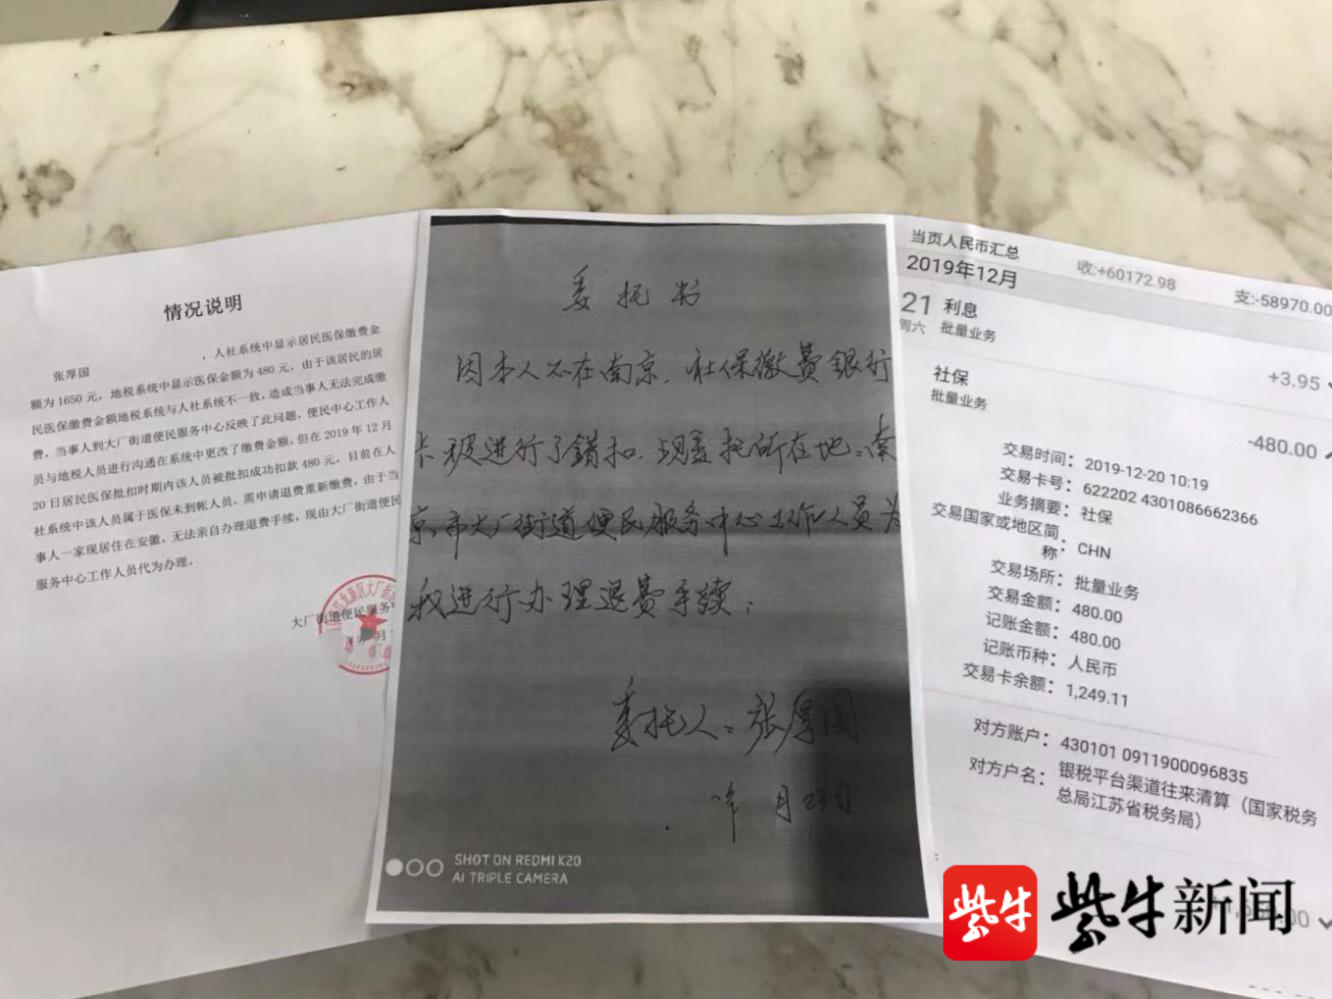 情况说明
张厚国 ，人社系统中显示居民医保缴费金
额为1650元，地税系统中显示医保金额为480元，由于该居民的居
民医保缴费金额地税系统与人社系统不一致，造成当事人无法完成缴
费，当事人到大厂街道便民服务中心反映了此问题，便民中心工作人
员与地税人员进行沟通在系统中更改了缴费金额，但在2019年12月
20日居民医保批扣时期内该人员被批扣成功扣款480元，目前在人
社系统中该人员属于医保未到帐人员，需申请退费重新缴费，由于当
事人一家现居住在安徽，无法亲自办理退费手续，现由大厂街道便民
服务中心工作人员代为办理。
大厂街道便民服务
月
委托书
因本人不在南京，社保缴费银行
卡被进行了错扣，现委托所在地：南
京市大厂街道便民服务中心工作人员为
我进行办理退费手续；
委托人：张厚国
年 月23日
SHOT ON REDMI K20
AI TRIPLE CAMERA
当页人民币汇总
2019年12月 收:+60172.98 支:-58970.00
21 利息
周六 批量业务
+3.95
社保
批量业务
-480.00
交易时间：2019-12-20 10:19
交易卡号：622202 4301086662366
业务摘要：社保
交易国家或地区简
称：CHN
交易场所：批量业务
交易金额：480.00
记账金额：480.00
记账币种：人民币
交易卡余额：1,249.11
对方账户：430101 0911900096835
对方户名：银税平台渠道往来清算（国家税务
总局江苏省税务局）
紫牛 紫牛新闻